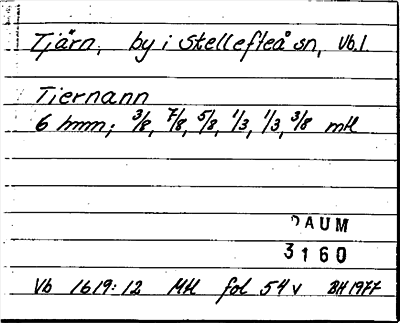 Tjärn, by i Skellefteå sn, Vb.l.
Tiernann
6 hmn; 3/8, 7/8, 5/8, 1/3, 1/3, 3/8 mtl
DAUM
3160
Vb 1619:12 Mtl fol 54 v BH 1977